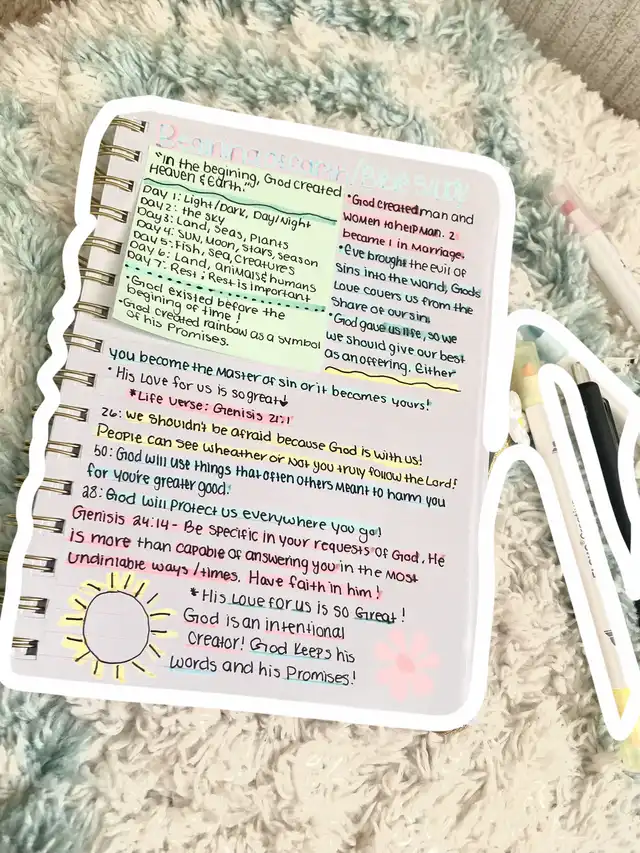 "In the begining, God created
Heaven & Earth."
Day 1: Light/Dark, Day/Night
Day 2: the sky
Day 3: Land, Seas, Plants
Day 4: Sun, Moon, Stars, season
Day 5: Fish, sea, creatures
Day 6: Land, animals & humans
Day 7: Rest; Rest is important
•God existed before the
begining of time!
•God created rainbow as a symbol
of his Promises.
•God created man and
women to help man. 2
became 1 in Marriage.
•Eve brought the evil of
Sins into the world, Gods
Love covers us from the
Share of our sin.
•God gave us life, so we
we should give our best
as an offering. Either
you become the Master of sin or it becomes yours!
•His Love for us is so great↓
*Life Verse: Genisis 21:1
26: We shouldn't be afraid because God is with us!
People can see wheather or not you truly follow the Lord!
50: God will use things that often others meant to harm you
for you're greater good.
28: God will Protect us everywhere you go!
Genisis 24:14- Be specific in your requests of God, He
is more than capable of answering you in the most
undiniable ways/times. Have faith in him!
*His Love for us is so Great!
God is an intentional
creator! God keeps his
words and his Promises!